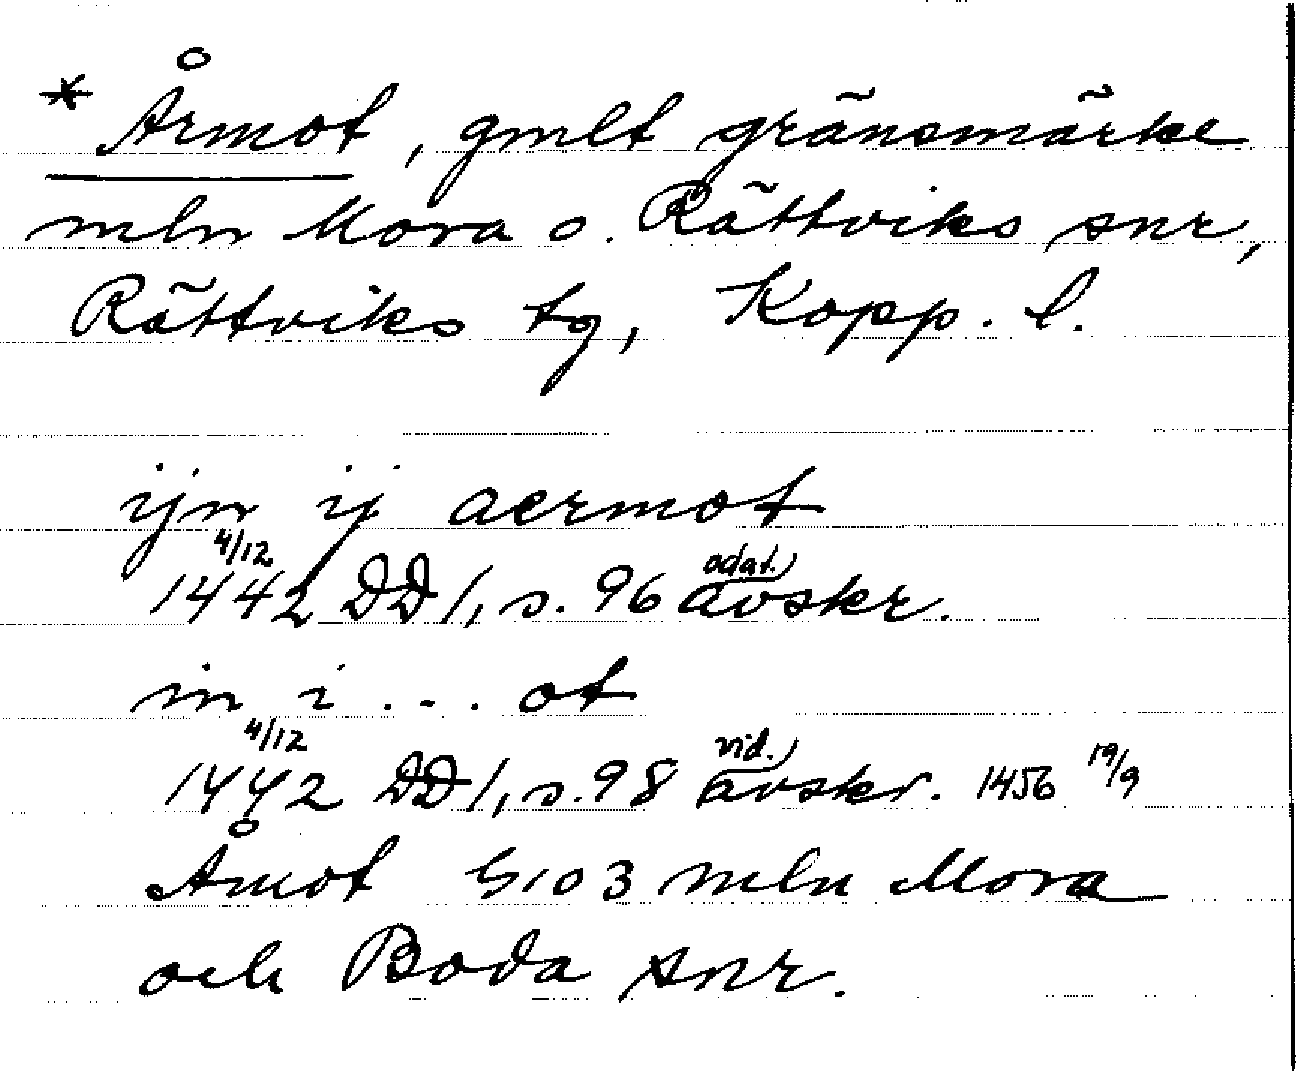 * Årmot, gmlt gränsmärke
mln Mora o. Rättviks snr,
Rättviks tg, Kopp. l.
ijn ij aermot
1442 4/12 DD 1, s. 96 odat. avskr.
in i ... ot
1442 4/12 DD 1, s. 98 vid. avskr. 1456 19/9
Åmot S103 mln Mora
och Boda snr.